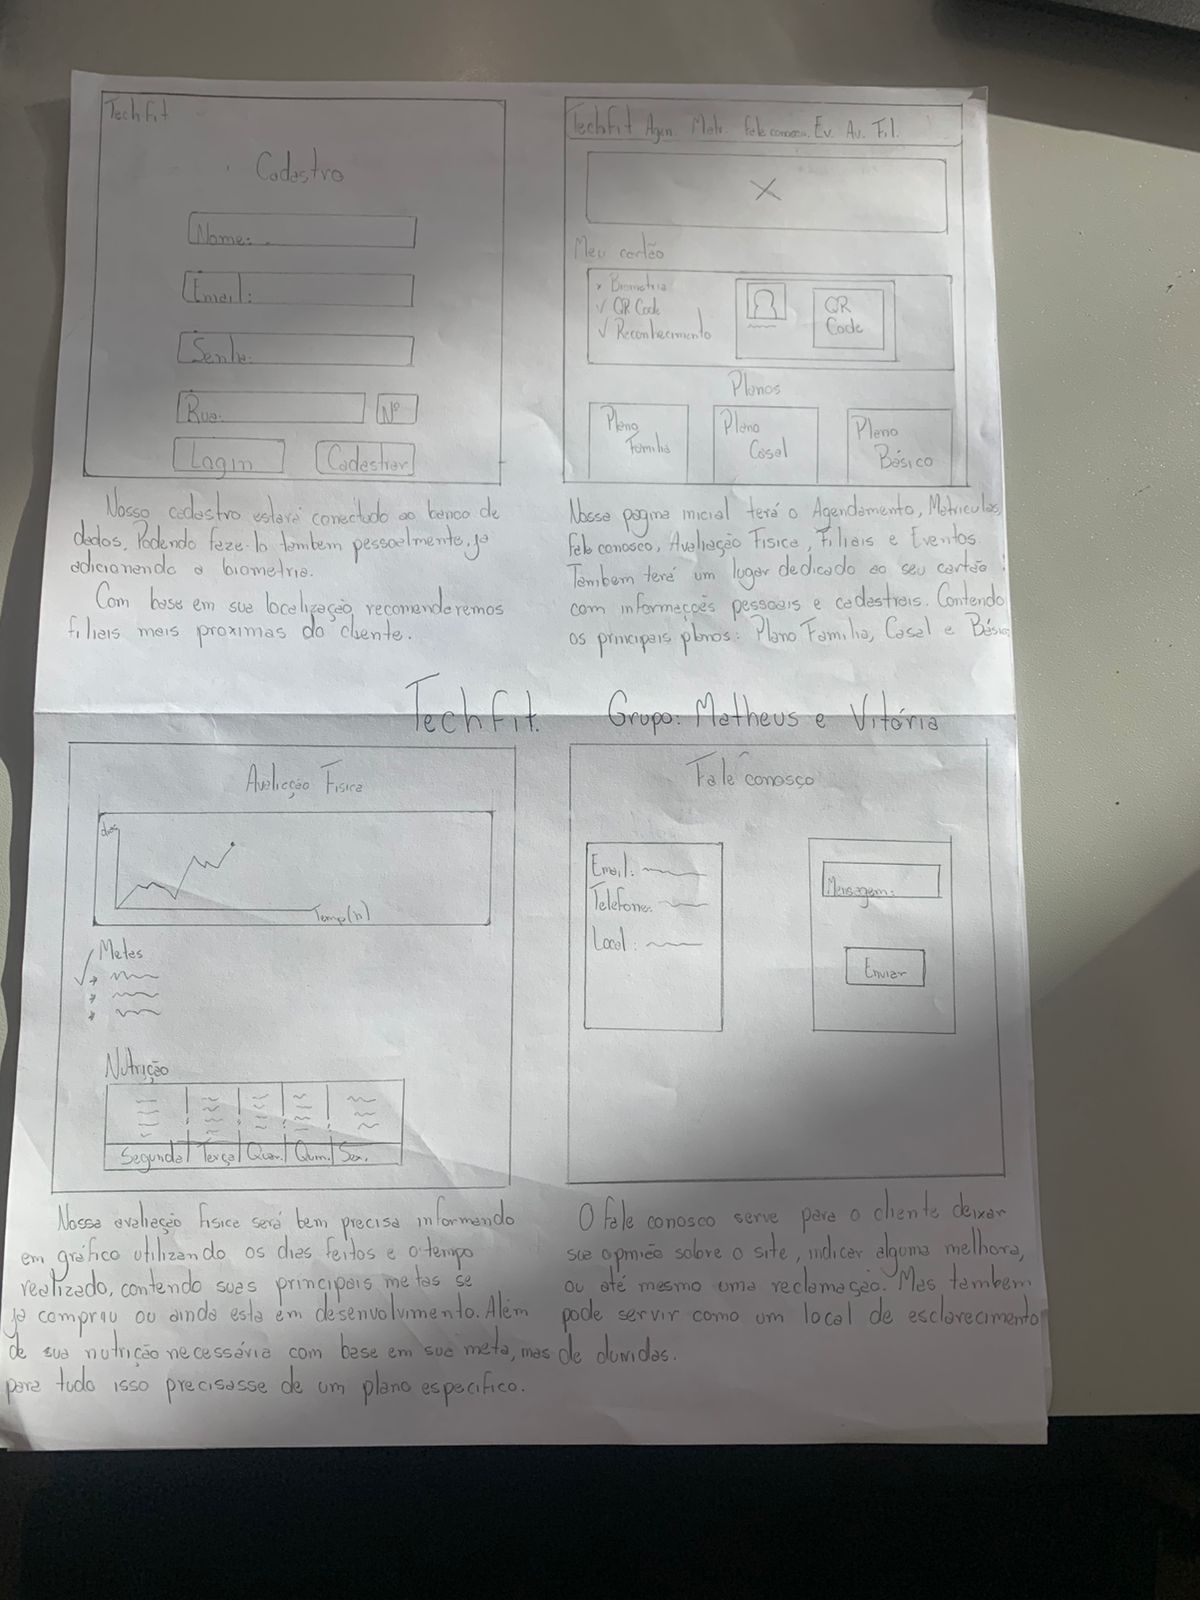 TechFit
Cadastro
Nome:
Email:
Senha:
Rua:
Nº
Login
Cadastrar
Nosso cadastro estará conectado ao banco de
dados, Podendo faze-lo tambem pessoalmente, ja
adicionando a biometria.
Com base em sua localização recomendaremos
filiais mais proximas do cliente.
TechFit Agen. Matr. Fale conosco. Ev. Av. Fil.
X
Meu cartão
x Biometria
√ QR Code
√ Reconhecimento
QR
Code
Planos
Plano
Familia
Plano
Casal
Plano
Básico
Nossa pagina inicial terá o Agendamento, Matriculas,
Fale conosco, Avaliação Fisica, Filiais e Eventos.
Tambem terá um lugar dedicado ao seu cartão
com informações pessoais e cadastrais. Contendo
os principais planos: Plano Familia, Casal e Básico
TechFit. Grupo: Matheus e Vitória
Avaliação Fisica
dias
Temp(n)
Metas
Nutrição
Segunda Terça Quar. Quin. Sex.
Nossa avaliação fisica será bem precisa informando
em gráfico utilizando os dias feitos e o tempo
realizado, contendo suas principais metas se
ja compriu ou ainda esta em desenvolvimento. Além
de sua nutrição necessária com base em sua meta, mas
para tudo isso precisasse de um plano especifico.
Fale conosco
Email:
Telefone:
Local:
Mensagem:
Enviar
O fale conosco serve para o cliente deixar
sua opinião sobre o site, indicar alguma melhora,
ou até mesmo uma reclamação. Mas tambem
pode servir como um local de esclarecimento
de duvidas.